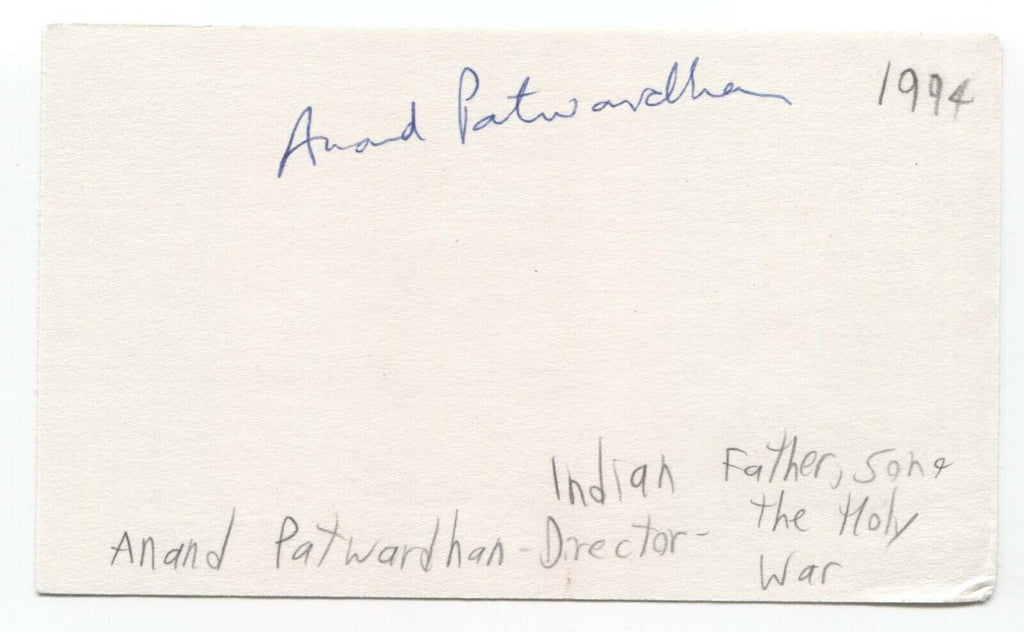 Anand Patwardhan 1994
Indian Father, Son &
Anand Patwardhan - Director - the Holy
War